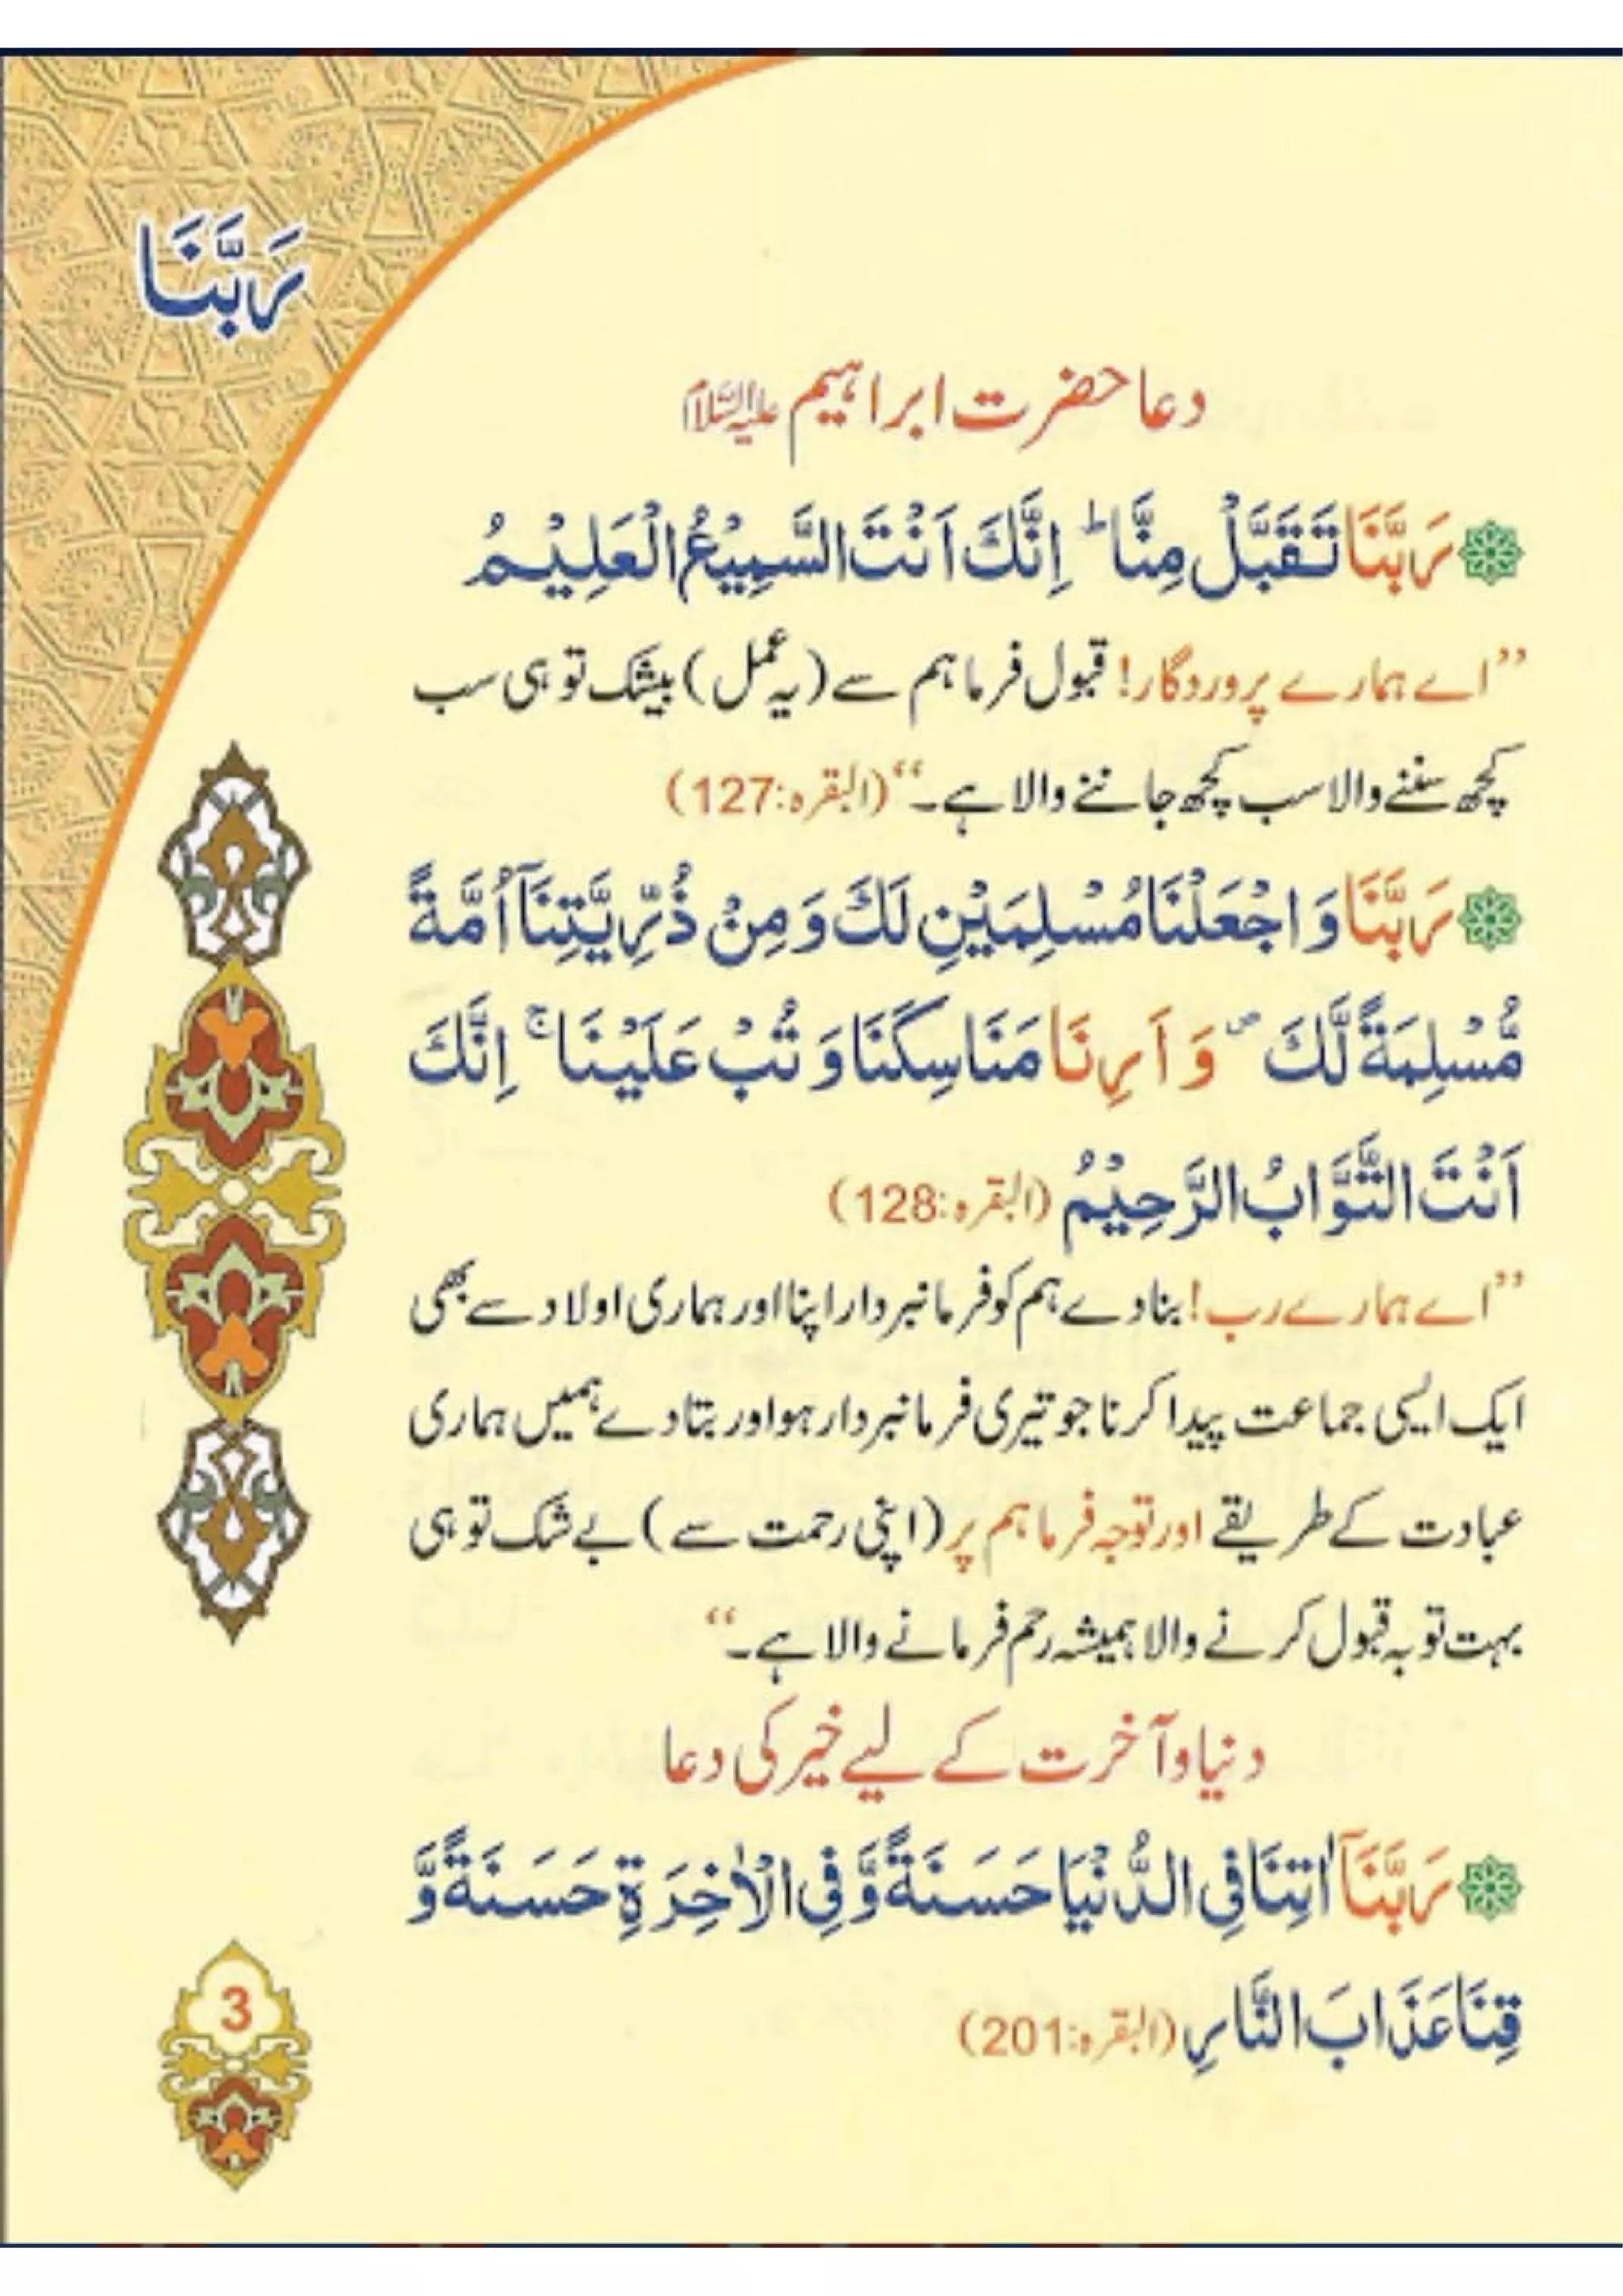 رَبَّنَا
دعا حضرت ابراہیم علیہ السلام
رَبَّنَا تَقَبَّلْ مِنَّا ؕ اِنَّكَ اَنْتَ السَّمِيْعُ الْعَلِيْمُ
”اے ہمارے پروردگار! قبول فرما ہم سے (یہ عمل) بیشک تو ہی سب
کچھ سننے والا سب کچھ جاننے والا ہے۔“ (البقرہ:127)
رَبَّنَا وَ اجْعَلْنَا مُسْلِمَيْنِ لَكَ وَ مِنْ ذُرِّيَّتِنَاۤ اُمَّةً
مُّسْلِمَةً لَّكَ ۪ وَ اَرِنَا مَنَاسِكَنَا وَ تُبْ عَلَيْنَا ۚ اِنَّكَ
اَنْتَ التَّوَّابُ الرَّحِيْمُ (البقرہ:128)
”اے ہمارے رب! بنا دے ہم کو فرمانبردار اپنا اور ہماری اولاد سے بھی
ایک ایسی جماعت پیدا کرنا جو تیری فرمانبردار ہو اور بتا دے ہمیں ہماری
عبادت کے طریقے اور توجہ فرما ہم پر (اپنی رحمت سے) بے شک تو ہی
بہت توبہ قبول کرنے والا ہمیشہ رحم فرمانے والا ہے۔“
دنیا و آخرت کے لیے خیر کی دعا
رَبَّنَاۤ اٰتِنَا فِی الدُّنْيَا حَسَنَةً وَّ فِی الْاٰخِرَةِ حَسَنَةً وَّ
قِنَا عَذَابَ النَّارِ (البقرہ:201)
3